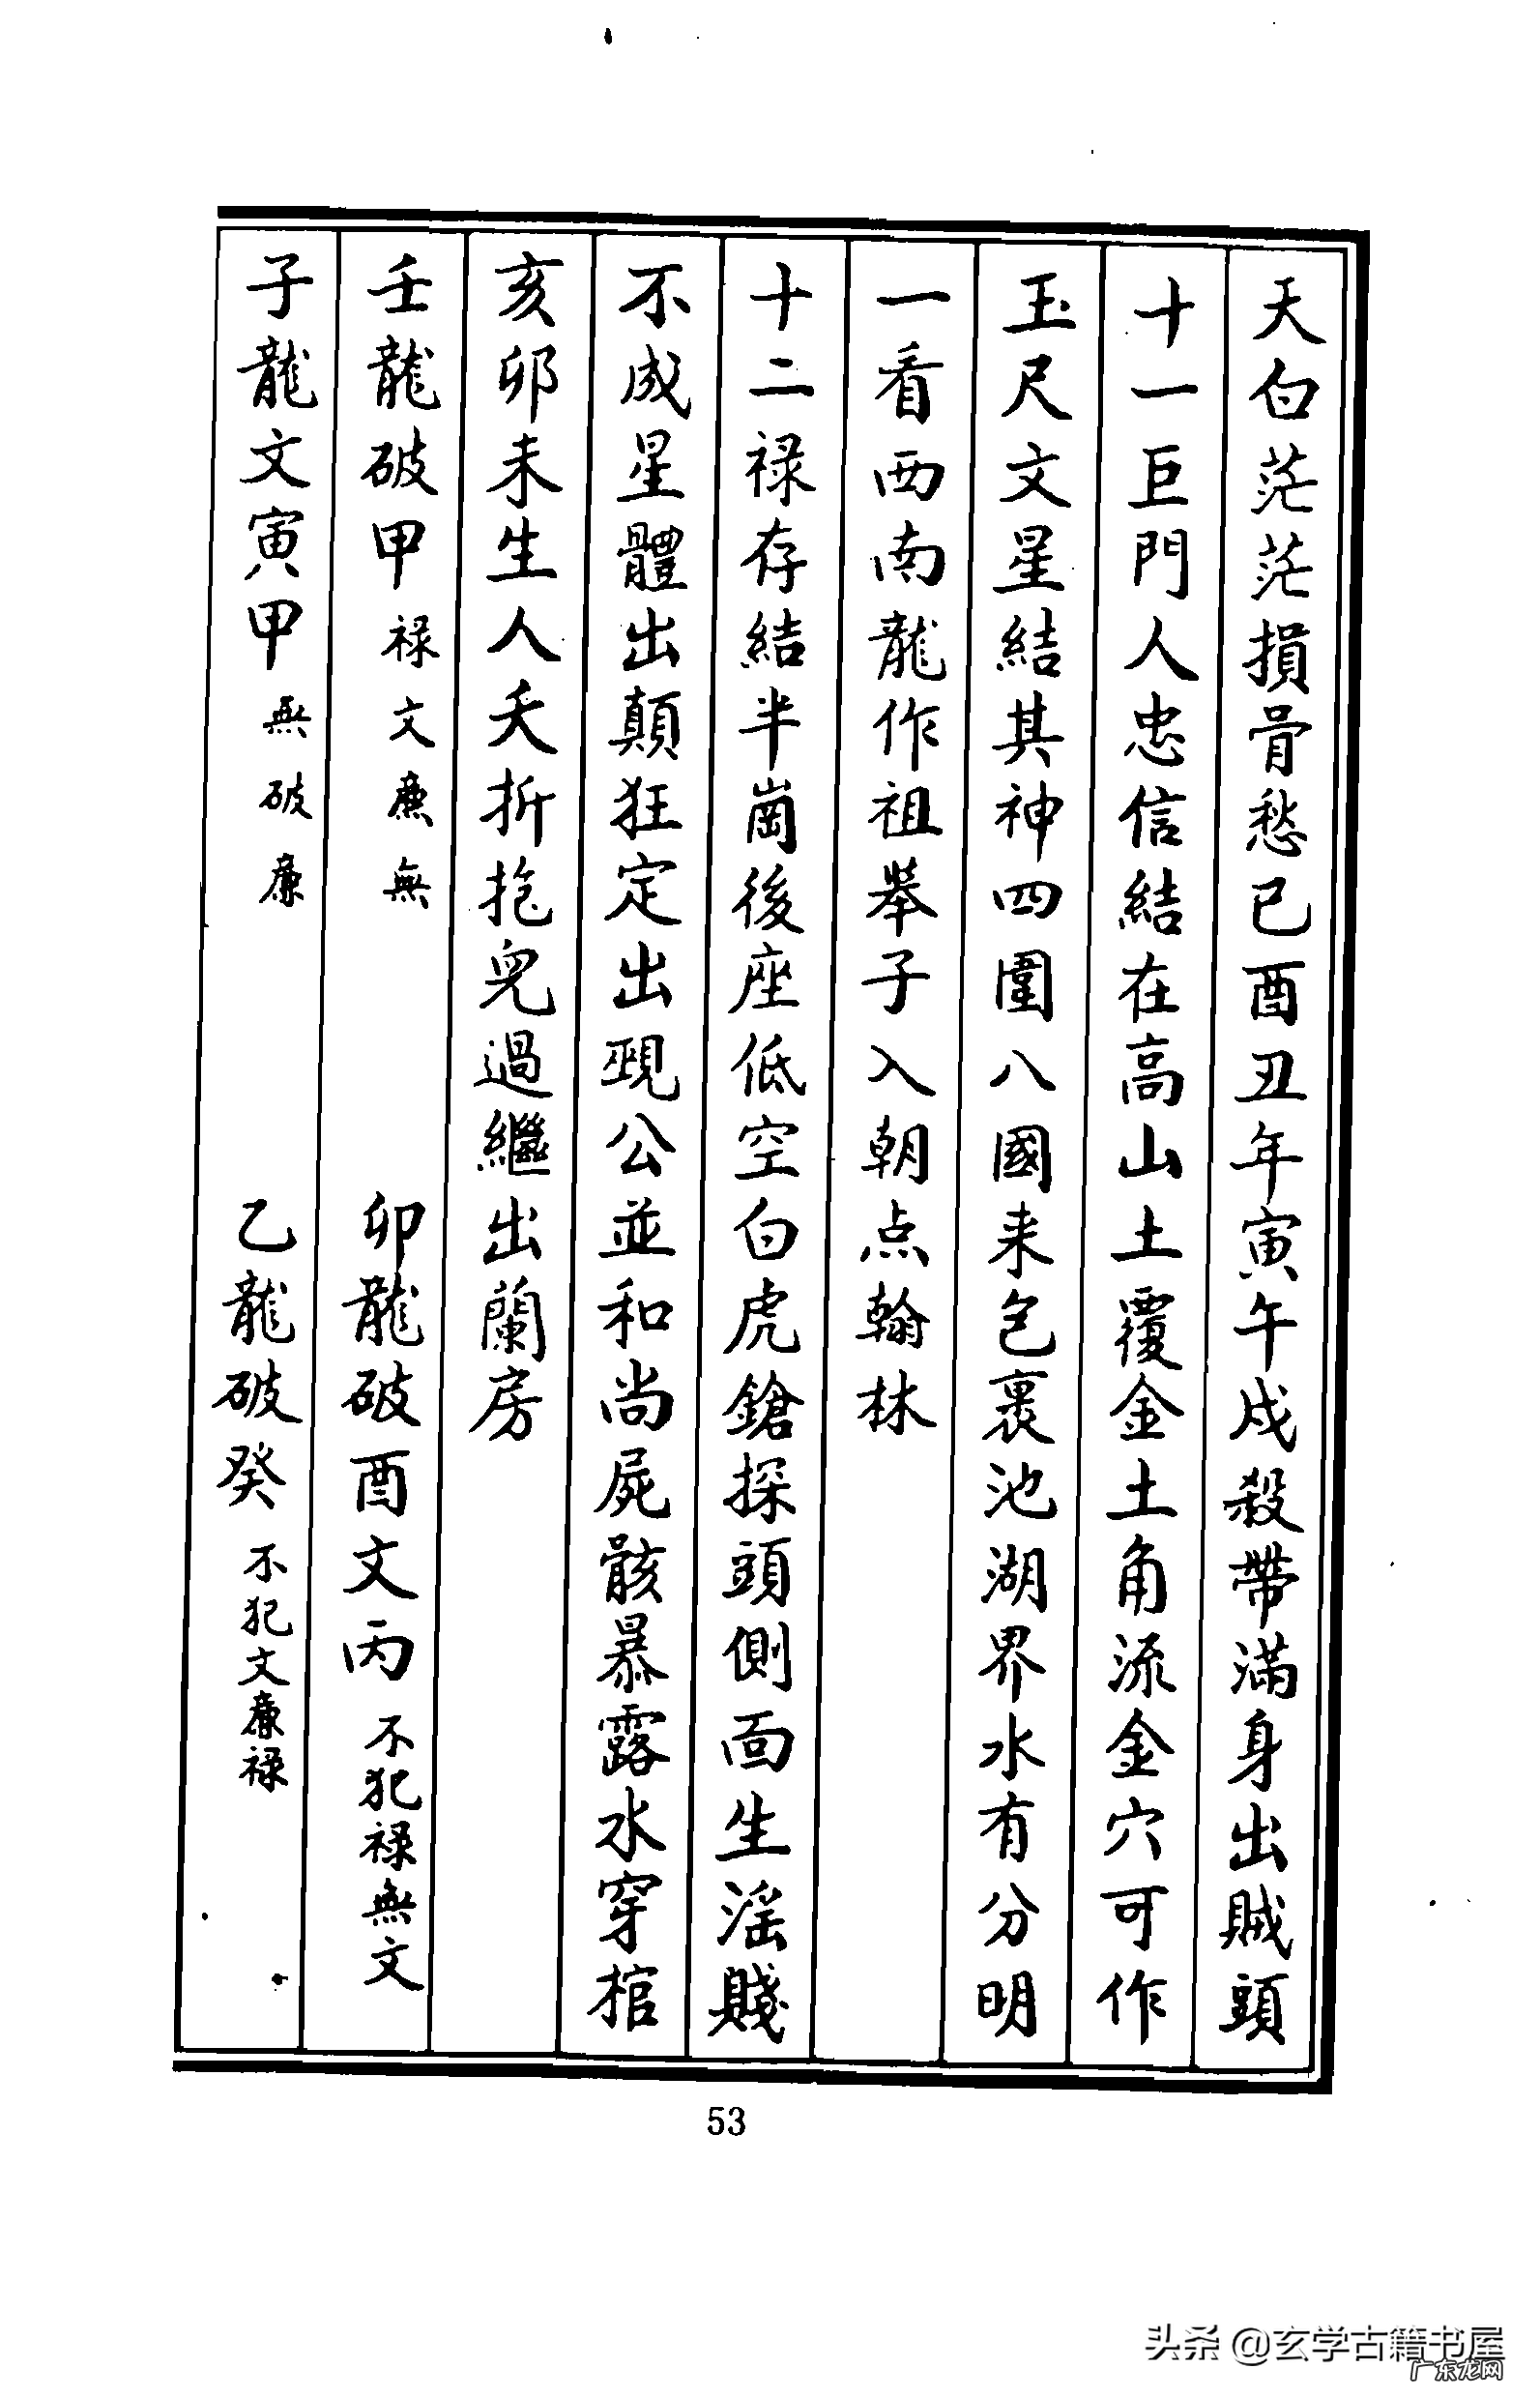 天白茫茫損骨愁巳酉丑年寅午戌殺帶滿身出賊頭
十一巨門人忠信結在高山土覆金土角流金穴可作
玉尺文星結其神四圍八國来包裹池湖界水有分明
一看西南龍作祖举子入朝点翰林
十二禄存結半崗後座低空白虎鎗探頭側面生淫賤
不成星體出顛狂定出覡公並和尚屍骸暴露水穿棺
亥卯未生人夭折抱兒過繼出蘭房
壬龍破甲 禄文廉無 卯龍破酉文丙 不犯禄無文
子龍文寅甲 無破廉 乙龍破癸 不犯文廉禄
53
头条 @玄学古籍书屋
广东龙网